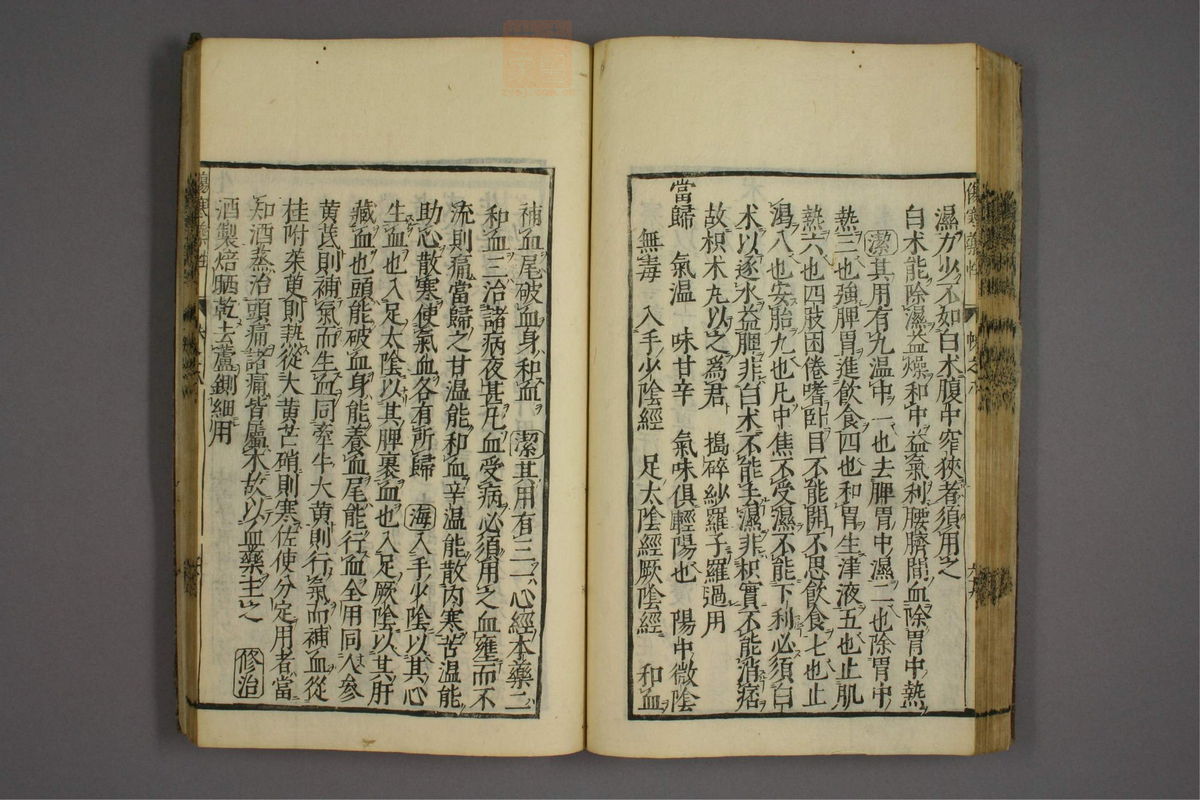 濕力少不如白朮腹中窄狹者須用之
白朮能除濕益燥和中益氣利腰臍間血除胃中熱
潔其用有九溫中一也去脾胃中濕二也除胃中
熱三也強脾胃進飲食四也和胃生津液五也止肌
熱六也四肢困倦嗜臥目不能開不思飲食七也止
渴八也安胎九也凡中焦不受濕不能下利必須白
朮以逐水益脾非白朮不能去濕非枳實不能消痞
故枳朮丸以之爲君 搗碎紗羅子羅過用
當歸 氣溫 味甘辛 氣味俱輕陽也 陽中微陰
無毒 入手少陰經 足太陰經厥陰經 和血
補血尾破血身和血 潔其用有三一心經本藥二
和血三治諸病夜甚凡血受病必須用之血壅而不
流則痛當歸之甘溫能和血辛溫能散內寒苦溫能
助心散寒使氣血各有所歸 海入手少陰以其心
生血也入足太陰以其脾裹血也入足厥陰以其肝
藏血也頭能破血身能養血尾能行血全用同人參
黃芪則補氣而生血同牽牛大黃則行氣而補血從
桂附茱萸則熱從大黃芒硝則寒佐使分定用者當
知酒蒸治頭痛諸痛皆屬木故以血藥主之 修治
酒製焙晒乾去蘆剉細用